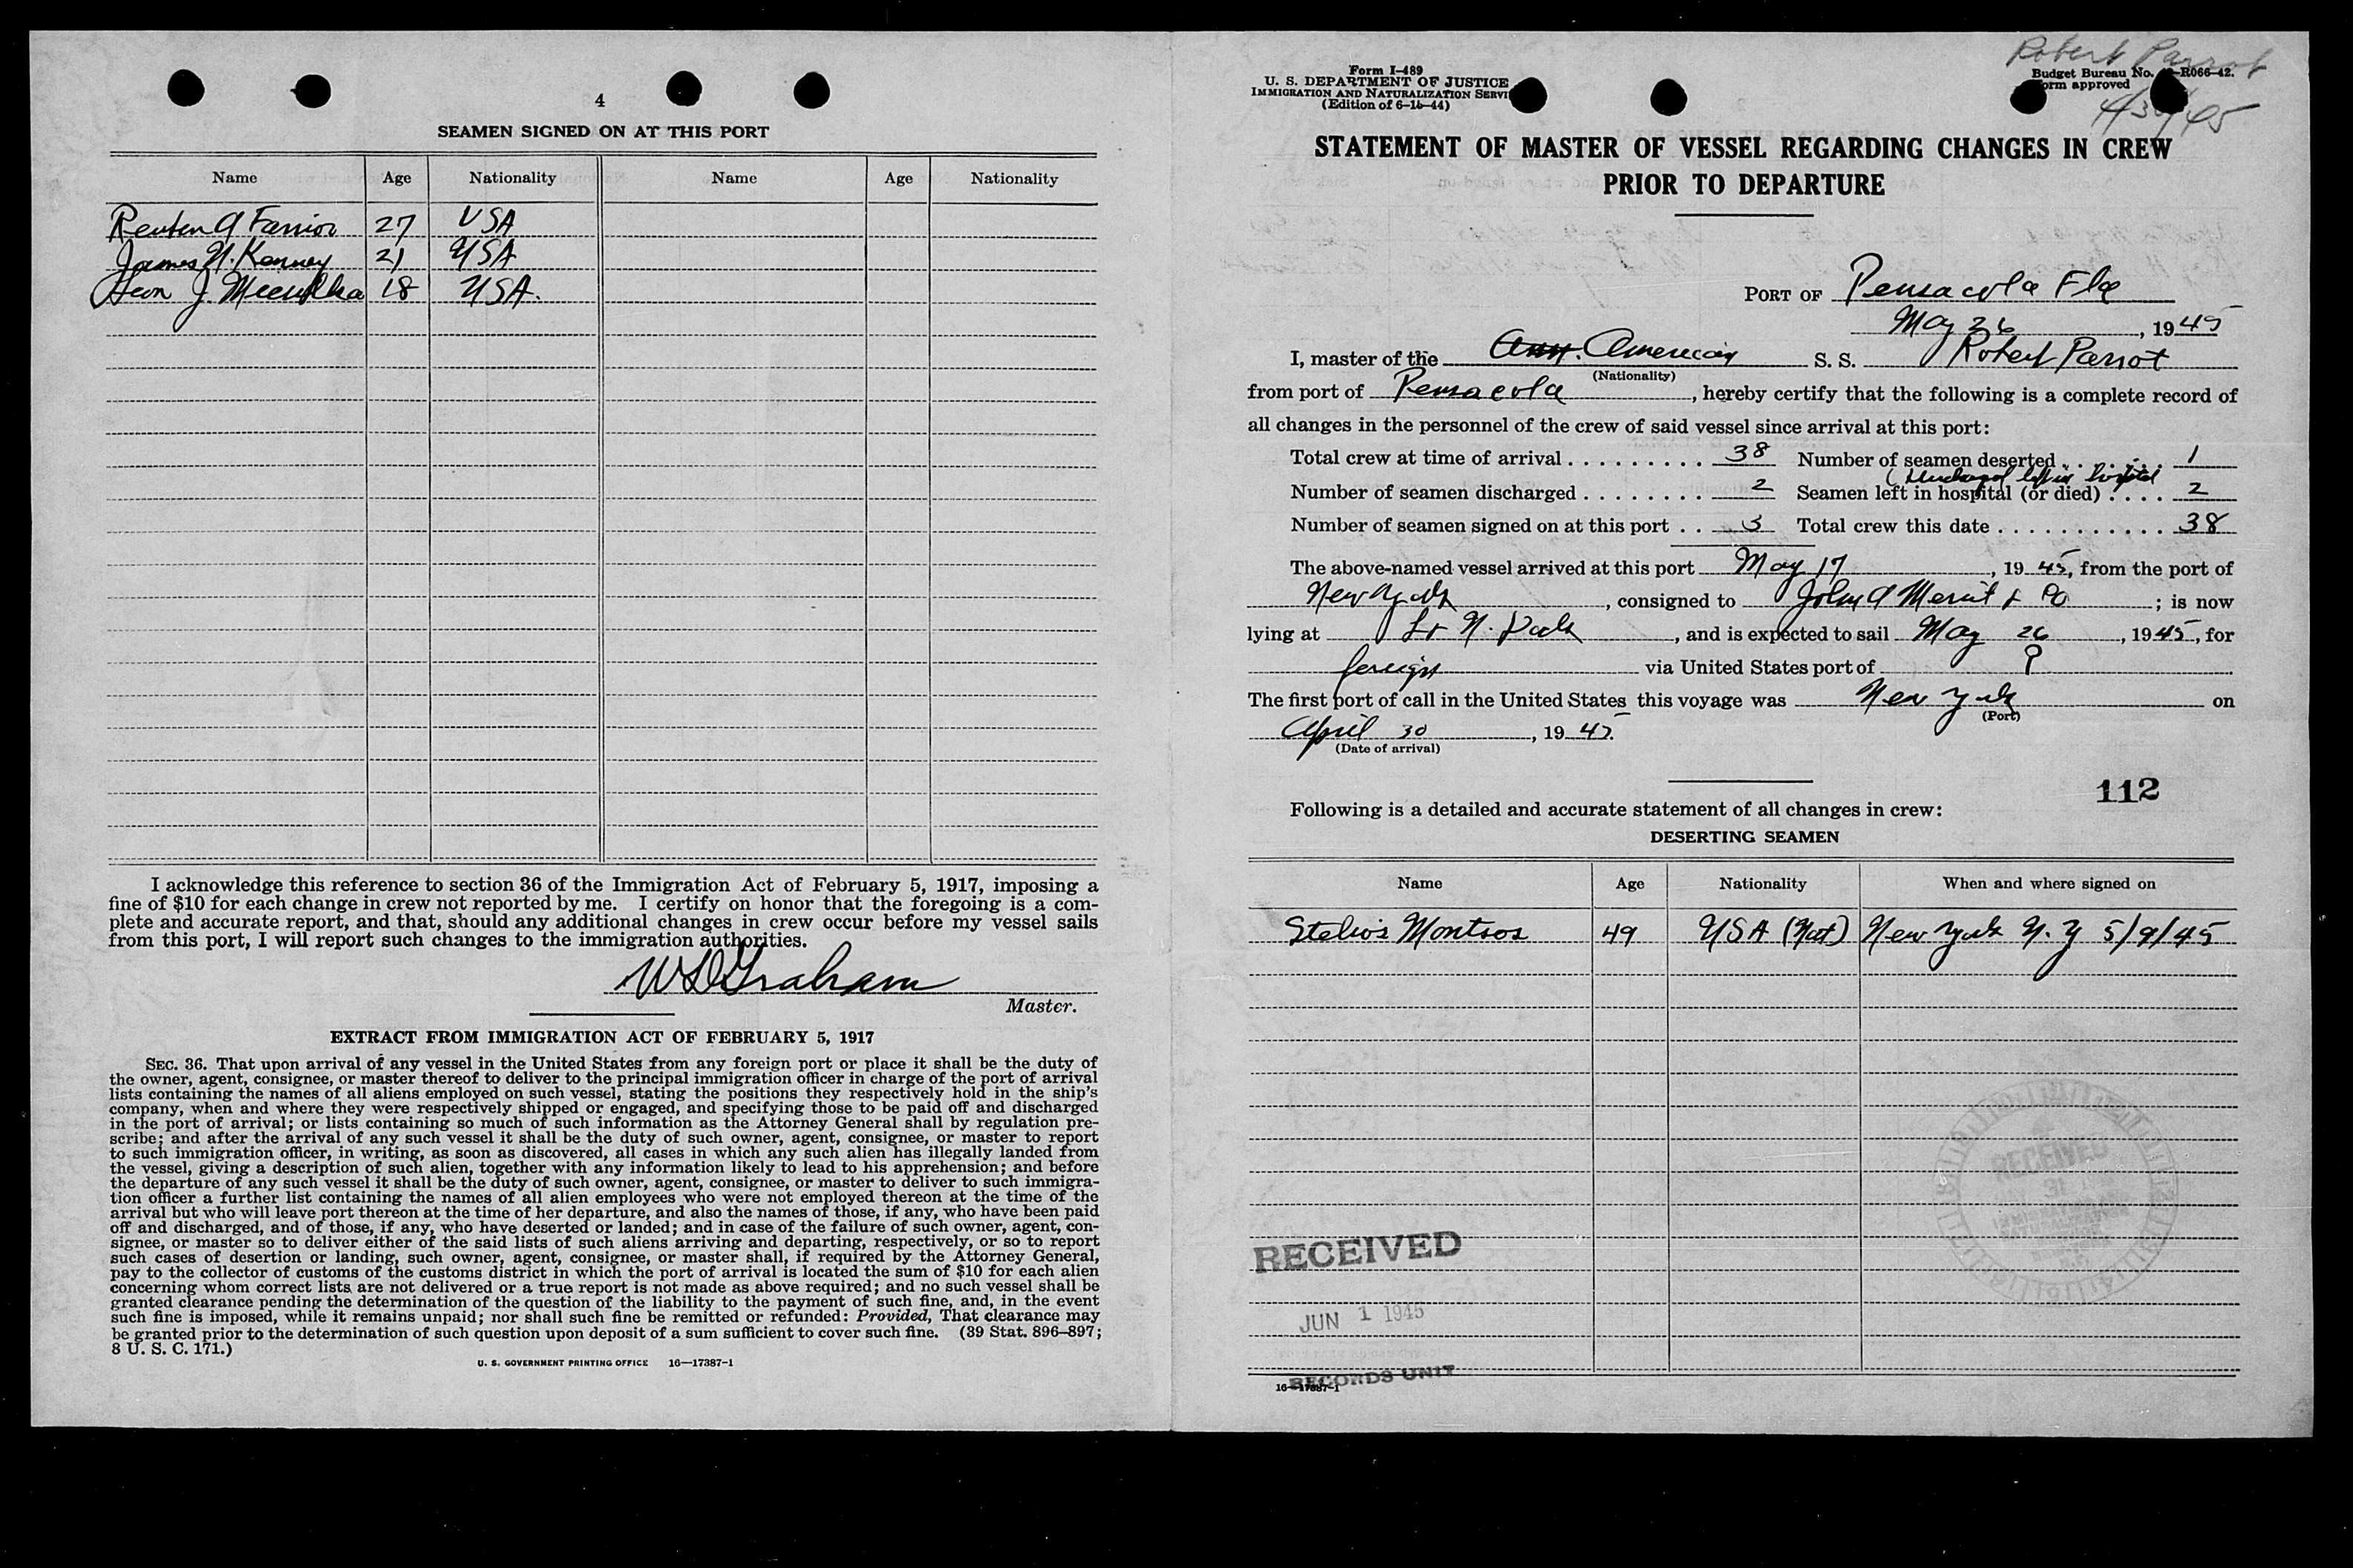 4
SEAMEN SIGNED ON AT THIS PORT
Name Age Nationality Name Age Nationality
Reuben A Farrior 27 USA
James N. Kenney 21 USA
Leon J. 18 USA.
I acknowledge this reference to section 36 of the Immigration Act of February 5, 1917, imposing a
fine of $10 for each change in crew not reported by me. I certify on honor that the foregoing is a com-
plete and accurate report, and that, should any additional changes in crew occur before my vessel sails
from this port, I will report such changes to the immigration authorities.
Graham
Master.
EXTRACT FROM IMMIGRATION ACT OF FEBRUARY 5, 1917
SEC. 36. That upon arrival of any vessel in the United States from any foreign port or place it shall be the duty of
the owner, agent, consignee, or master thereof to deliver to the principal immigration officer in charge of the port of arrival
lists containing the names of all aliens employed on such vessel, stating the positions they respectively hold in the ship's
company, when and where they were respectively shipped or engaged, and specifying those to be paid off and discharged
in the port of arrival; or lists containing so much of such information as the Attorney General shall by regulation pre-
scribe; and after the arrival of any such vessel it shall be the duty of such owner, agent, consignee, or master to report
to such immigration officer, in writing, as soon as discovered, all cases in which any such alien has illegally landed from
the vessel, giving a description of such alien, together with any information likely to lead to his apprehension; and before
the departure of any such vessel it shall be the duty of such owner, agent, consignee, or master to deliver to such immigra-
tion officer a further list containing the names of all alien employees who were not employed thereon at the time of the
arrival but who will leave port thereon at the time of her departure, and also the names of those, if any, who have been paid
off and discharged, and of those, if any, who have deserted or landed; and in case of the failure of such owner, agent, con-
signee, or master so to deliver either of the said lists of such aliens arriving and departing, respectively, or so to report
such cases of desertion or landing, such owner, agent, consignee, or master shall, if required by the Attorney General,
pay to the collector of customs of the customs district in which the port of arrival is located the sum of $10 for each alien
concerning whom correct lists are not delivered or a true report is not made as above required; and no such vessel shall be
granted clearance pending the determination of the question of the liability to the payment of such fine, and, in the event
such fine is imposed, while it remains unpaid; nor shall such fine be remitted or refunded: Provided, That clearance may
be granted prior to the determination of such question upon deposit of a sum sufficient to cover such fine. (39 Stat. 896–897;
8 U. S. C. 171.)
U. S. GOVERNMENT PRINTING OFFICE 16—17387-1
Robert Parrot
Form I-489
U. S. DEPARTMENT OF JUSTICE
IMMIGRATION AND NATURALIZATION SERVI
(Edition of 6-15-44)
Budget Bureau No. -R066-42.
orm approved
4/30/45
STATEMENT OF MASTER OF VESSEL REGARDING CHANGES IN CREW
PRIOR TO DEPARTURE
PORT OF Pensacola Fla
May 26, 1945
I, master of the American S. S. Robert Parrot
(Nationality)
from port of Pensacola, hereby certify that the following is a complete record of
all changes in the personnel of the crew of said vessel since arrival at this port:
Total crew at time of arrival . . . . . . . . . 38 Number of seamen deserted . . . . . . 1
(Discharged left in hospital
Number of seamen discharged . . . . . . . . 2 Seamen left in hospital (or died) . . . . 2
Number of seamen signed on at this port . . 3 Total crew this date . . . . . . . . . . . . 38
The above-named vessel arrived at this port May 17, 1945, from the port of
New York, consigned to John A Merrit & Co; is now
lying at L & N. Dock, and is expected to sail May 26, 1945, for
foreign via United States port of ?
The first port of call in the United States this voyage was New York on
(Port)
April 30, 1945.
(Date of arrival)
112
Following is a detailed and accurate statement of all changes in crew:
DESERTING SEAMEN
Name Age Nationality When and where signed on
Stelios Montsos 49 USA (Nat) New York N.Y 5/9/45
RECEIVED
31
RECEIVED
JUN 1 1945
RECORDS UNIT
16—17387-1